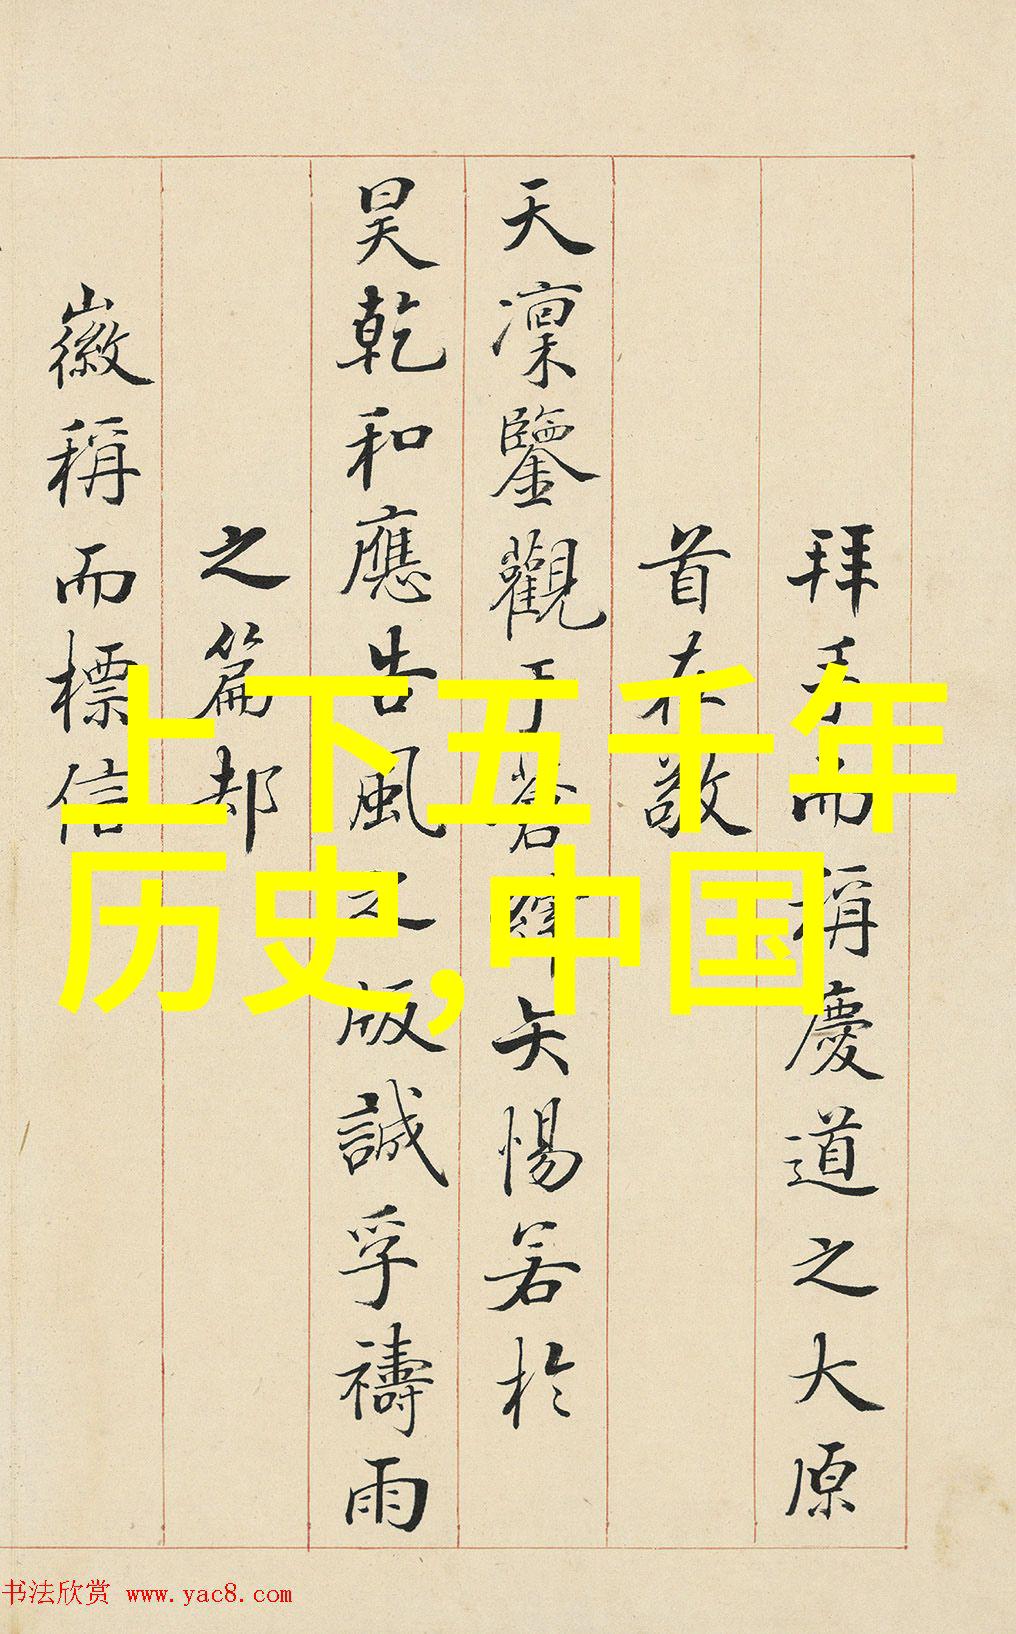 拜手而稱慶道之大原
首在敬
天凜鑒觀于蒼昊矢惕若於
昊乾和應告風之版誠孚禱雨
之篇却
徽稱而標信
上下五千年
历史,中国
书法欣赏 www.yac8.com